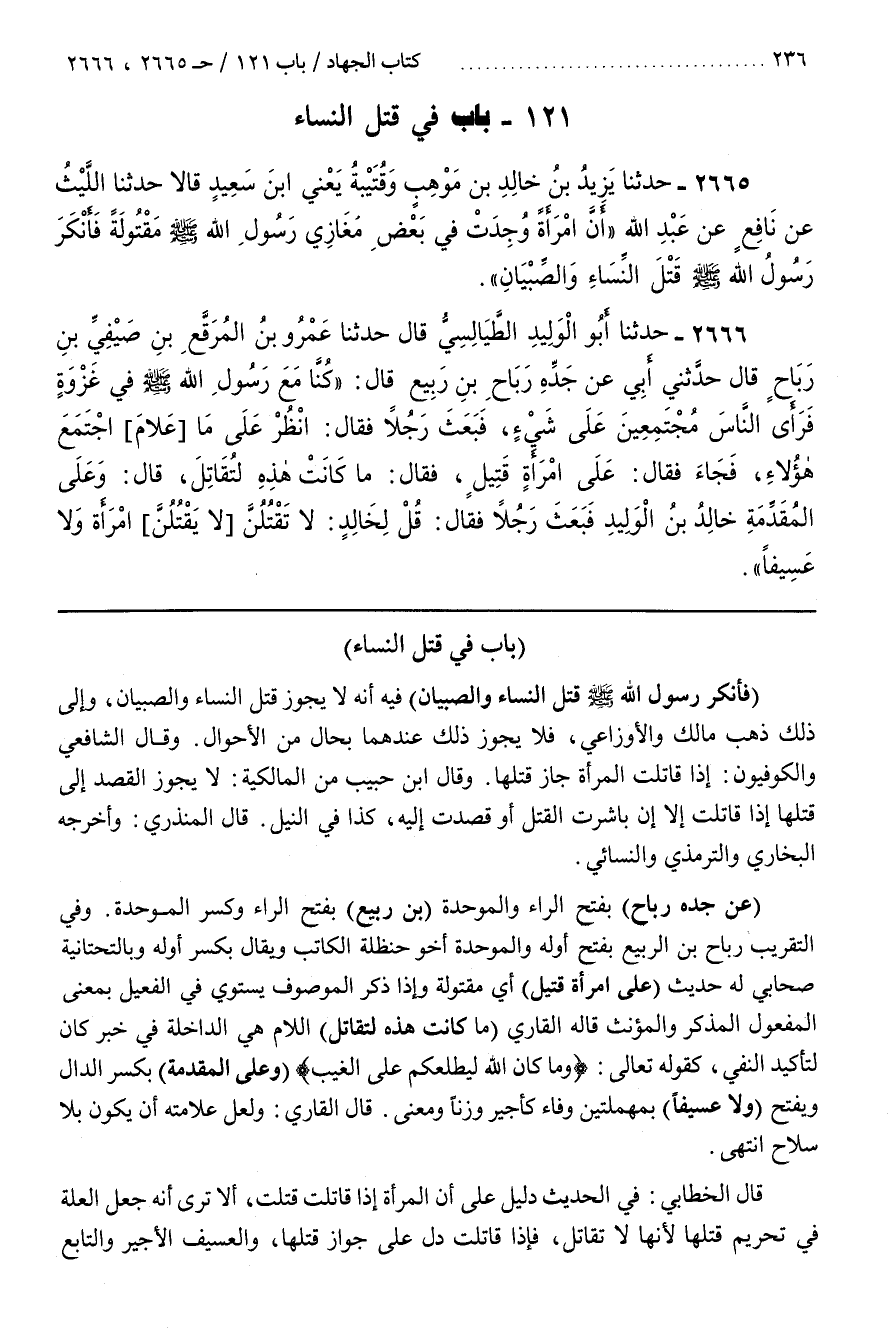 ٢٣٦ ................................... كتاب الجهاد / باب ١٢١ / حـ ٢٦٦٥ ، ٢٦٦٦
١٢١ ـ باب في قتل النساء
٢٦٦٥ ـ حدثنا يَزِيدُ بنُ خالِدِ بن مَوْهِبٍ وَقُتَيْبةُ يَعْني ابنَ سَعِيدٍ قالا حدثنا اللَّيْثُ
عن نَافِعٍ عن عَبْدِ الله «أَنَّ امْرَأَةً وُجِدَتْ في بَعْضِ مَغَازِي رَسُولِ الله ﷺ مَقْتُولَةً فَأَنْكَرَ
رَسُولُ الله ﷺ قَتْلَ النِّسَاءِ وَالصِّبْيَانِ».
٢٦٦٦ ـ حدثنا أَبُو الْوَلِيدِ الطَّيَالِسِيُّ قال حدثنا عَمْرُو بنُ المُرَقَّعِ بنِ صَيْفِيِّ بنِ
رَبَاحٍ قال حدَّثني أَبِي عن جَدِّهِ رَبَاحِ بنِ رَبِيعٍ قال: «كُنَّا مَعَ رَسُولِ الله ﷺ في غَزْوَةٍ
فَرَأَى النَّاسَ مُجْتَمِعِينَ عَلَى شَيْءٍ، فَبَعَثَ رَجُلاً فقال: انْظُرْ عَلَى مَا [عَلامَ] اجْتَمَعَ
هٰؤُلاءِ، فَجَاءَ فقال: عَلَى امْرَأَةٍ قَتِيلٍ، فقال: ما كَانَتْ هٰذِهِ لتُقَاتِلَ، قال: وَعَلَى
المُقَدِّمَةِ خالِدُ بنُ الْوَلِيدِ فَبَعَثَ رَجُلاً فقال: قُلْ لِخَالِدٍ: لا تَقْتُلُنَّ [لا يَقْتُلُنَّ] امْرَأَة وَلا
عَسِيفاً».
(باب في قتل النساء)
(فأنكر رسول الله ﷺ قتل النساء والصبيان) فيه أنه لا يجوز قتل النساء والصبيان، وإلى
ذلك ذهب مالك والأوزاعي، فلا يجوز ذلك عندهما بحال من الأحوال. وقال الشافعي
والكوفيون: إذا قاتلت المرأة جاز قتلها. وقال ابن حبيب من المالكية: لا يجوز القصد إلى
قتلها إذا قاتلت إلا إن باشرت القتل أو قصدت إليه، كذا في النيل. قال المنذري: وأخرجه
البخاري والترمذي والنسائي.
(عن جده رباح) بفتح الراء والموحدة (بن ربيع) بفتح الراء وكسر الموحدة. وفي
التقريب رباح بن الربيع بفتح أوله والموحدة أخو حنظلة الكاتب ويقال بكسر أوله وبالتحتانية
صحابي له حديث (على امرأة قتيل) أي مقتولة وإذا ذكر الموصوف يستوي في الفعيل بمعنى
المفعول المذكر والمؤنث قاله القاري (ما كانت هذه لتقاتل) اللام هي الداخلة في خبر كان
لتأكيد النفي، كقوله تعالى: ﴿وما كان الله ليطلعكم على الغيب﴾ (وعلى المقدمة) بكسر الدال
ويفتح (ولا عسيفاً) بمهملتين وفاء كأجير وزناً ومعنى. قال القاري: ولعل علامته أن يكون بلا
سلاح انتهى.
قال الخطابي: في الحديث دليل على أن المرأة إذا قاتلت قتلت، ألا ترى أنه جعل العلة
في تحريم قتلها لأنها لا تقاتل، فإذا قاتلت دل على جواز قتلها، والعسيف الأجير والتابع